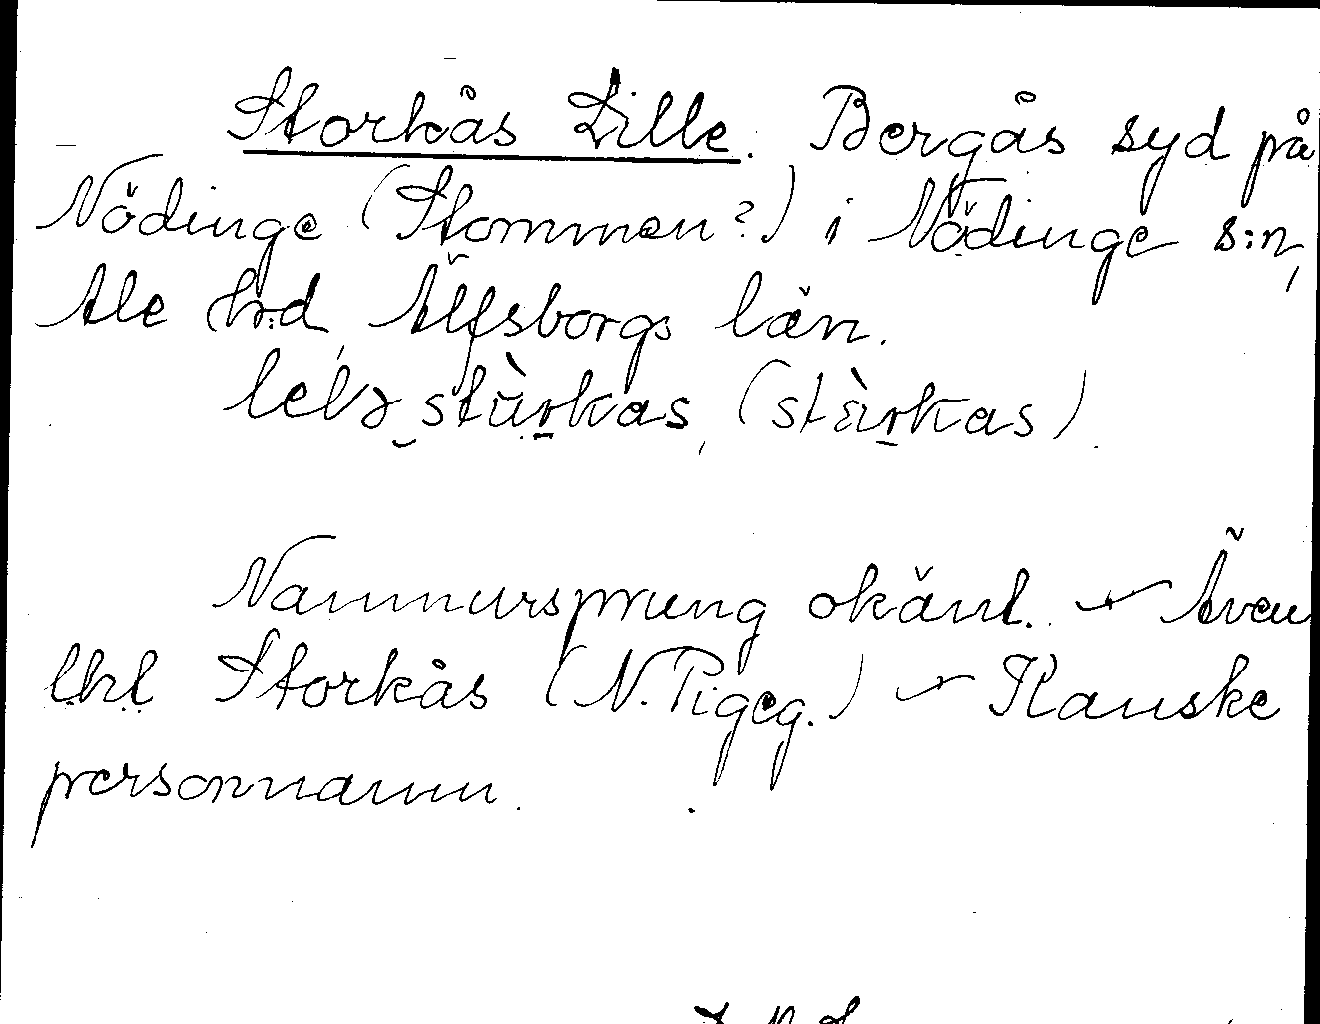 Storkås Lille. Bergås syd på
Nödinge (Stommen?) i Nödinge s:n,
Ale h:d, Älfsborgs län.
stàrkas, (stàrkas).
Namnursprung okänt. — Även
Storkås (N. Pigeg.) — Kanske
personnamn.